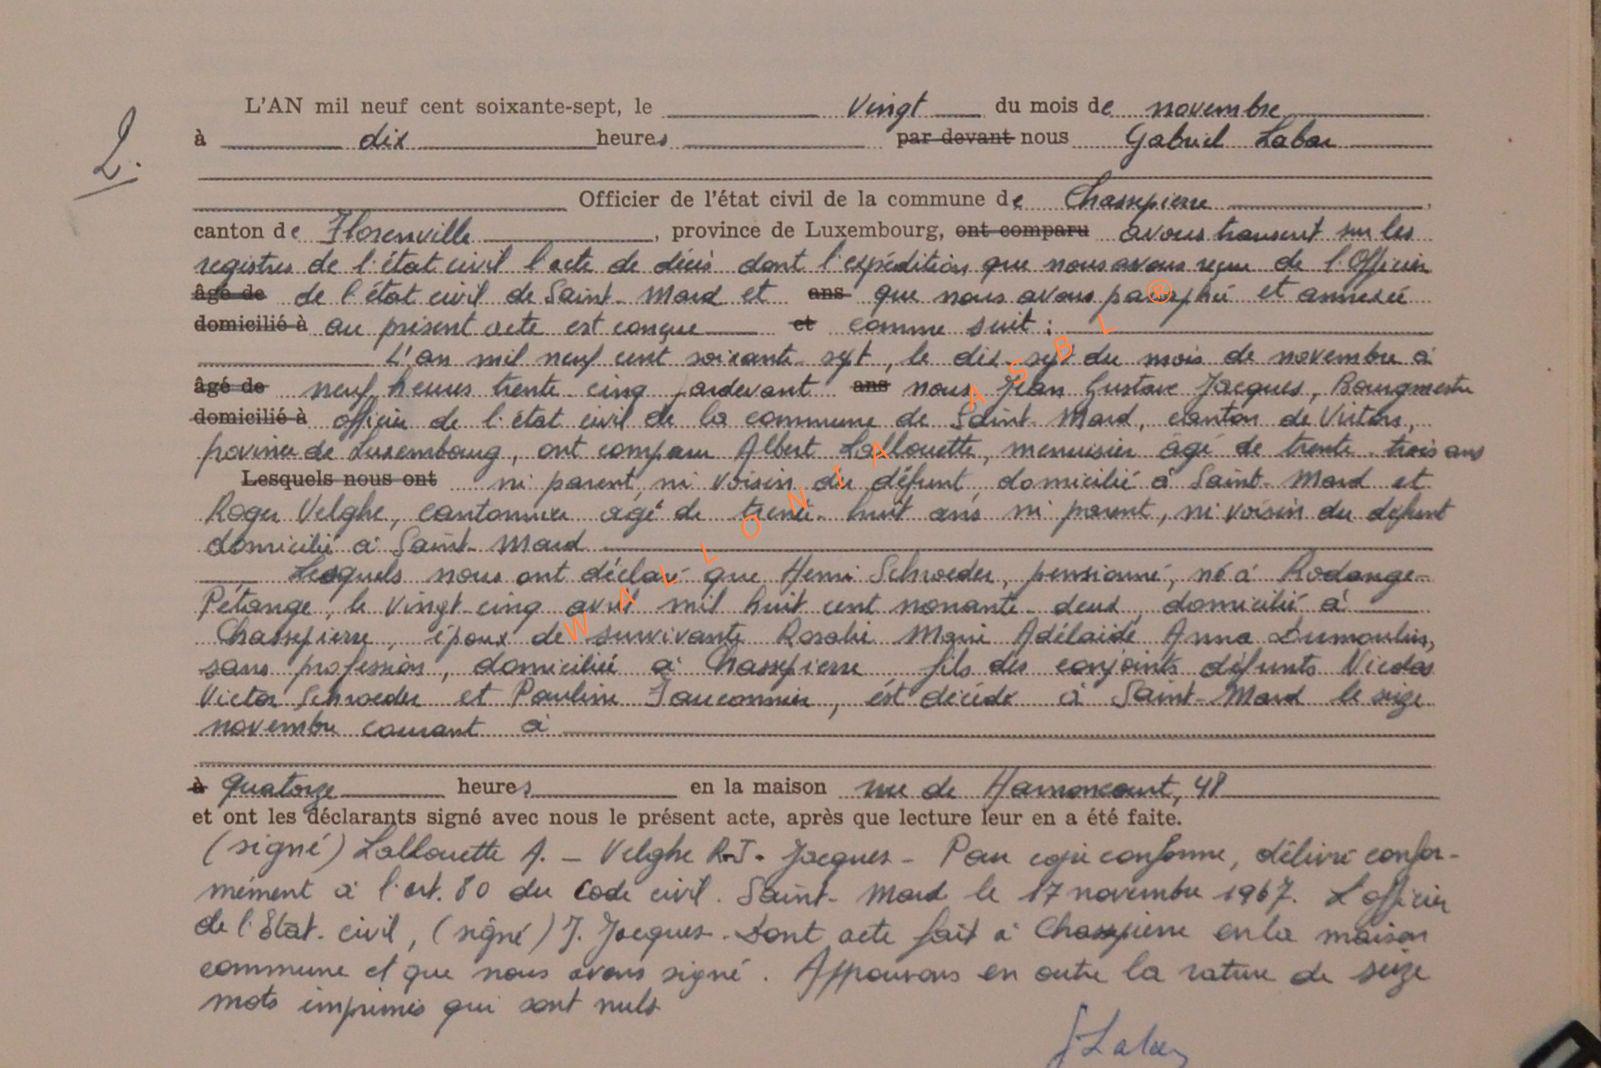 L'AN mil neuf cent soixante-sept, le vingt du mois de novembre
2. à dix heures par devant nous Gabriel Labar
Officier de l'état civil de la commune de Chassepierre,
canton de Florenville, province de Luxembourg, ont comparu avons transcrit sur les
registres de l'état civil l'acte de décès dont l'expédition que nous avons reçue de l'Officier
âgé de de l'état civil de Saint-Mard et ans que nous avons paraphé et annexée
domicilié à au présent acte est conçue et comme suit :
L'an mil neuf cent soixante-sept, le dix-sept du mois de novembre à
âgé de neuf heures trente-cinq pardevant ans nous Jean Gustave Jacques, Bourgmestre
domicilié à officier de l'état civil de la commune de Saint-Mard, canton de Virton,
province de Luxembourg, ont comparu Albert Lallouette, menuisier âgé de trente-trois ans
Lesquels nous ont ni parent, ni voisin du défunt, domicilié à Saint-Mard et
Roger Velghe, cantonnier âgé de trente-huit ans ni parent, ni voisin du défunt
domicilié à Saint-Mard
Lesquels nous ont déclaré que Henri Schroeder, pensionné, né à Rodange-
Pétange, le vingt-cinq avril mil huit cent nonante-deux, domicilié à
Chassepierre, époux de survivante Rosalie Marie Adélaïde Anna Dumoulin,
sans profession, domiciliée à Chassepierre fils des conjoints défunts Nicolas
Victor Schroeder et Pauline Fauconnier, est décédé à Saint-Mard le seize
novembre courant à
à quatorze heures en la maison rue de Harnoncourt, 48
et ont les déclarants signé avec nous le présent acte, après que lecture leur en a été faite.
(signé) Lallouette A. – Velghe R.J. Jacques – Pour copie conforme, délivré confor-
mément à l'art. 80 du Code civil. Saint-Mard le 17 novembre 1967. L'officier
de l'Etat-civil, (signé) J. Jacques. Dont acte fait à Chassepierre en la maison
commune et que nous avons signé. Approuvons en outre la rature de seize
mots imprimés qui sont nuls
GLabar
WALLONIA ASBL